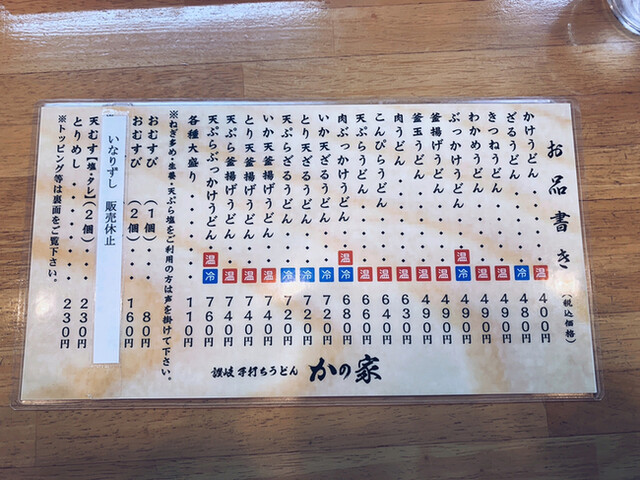 お品書き(税込価格)
かけうどん・・・温 400円
ざるうどん・・・冷 480円
きつねうどん・・・温 490円
わかめうどん・・・温 490円
ぶっかけうどん・・温冷 490円
釜揚げうどん・・・温 490円
釜玉うどん・・・温 490円
肉うどん・・・・温 630円
こんぴらうどん・・温 640円
天ぷらうどん・・・温 660円
肉ぶっかけうどん 温冷 680円
いか天ざるうどん・・冷 720円
とり天ざるうどん・・冷 720円
天ぷらざるうどん・・冷 720円
いか天釜揚げうどん・温 740円
とり天釜揚げうどん・温 740円
天ぷら釜揚げうどん・温 740円
天ぷらぶっかけうどん 温冷 760円
各種大盛り・・・・・110円
※ねぎ多め・生姜・天ぷら塩をご利用の方は声を掛けて下さい。
おむすび (1個)・・・80円
おむすび (2個)・・・160円
いなりずし 販売休止
天むす【塩・タレ】(2個)・・230円
とりめし・・・・・・・230円
※トッピング等は裏面をご覧下さい。
讃岐 手打ちうどん かの家